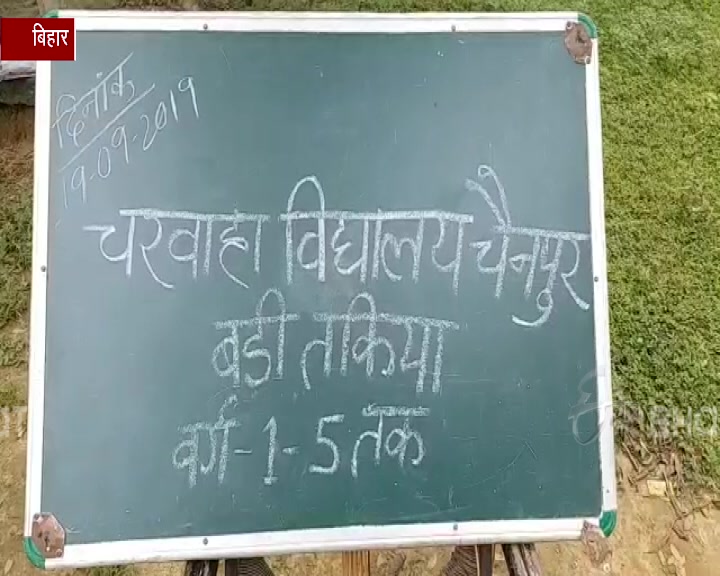 बिहार
दिनांक
19-09-2019
चरवाहा विद्यालय चैनपुर
बडी तकिया
वर्ग-1-5 तक